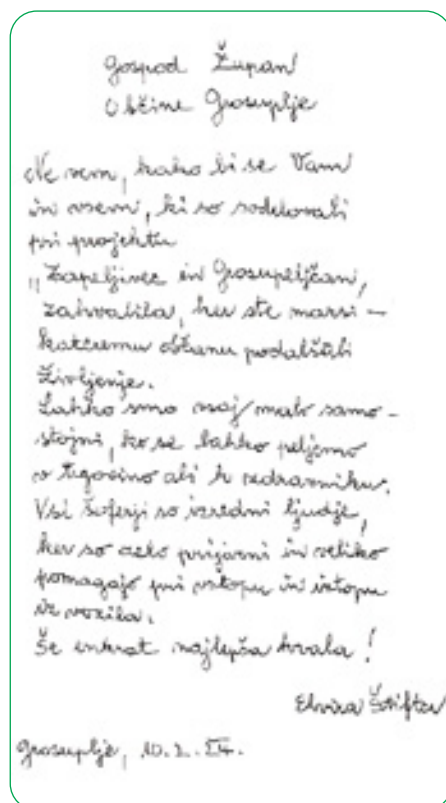 Gospod Župan
Občine Grosuplje
Ne vem, kako bi se Vam
in vsem, ki so sodelovali
pri projektu
„Zapeljivec in Grosupeljčan,
zahvalila, ker ste marsi –
kateremu občanu podaljšali
življenje.
Lahko smo vsaj malo samo –
stojni, ko se lahko peljemo
v trgovino ali k zdravniku.
Vsi šoferji so izredni ljudje,
ker so zelo prijazni in veliko
pomagajo pri vstopu in izstopu
iz vozila.
Še enkrat najlepša hvala!
Elvira
Grosuplje, 10.